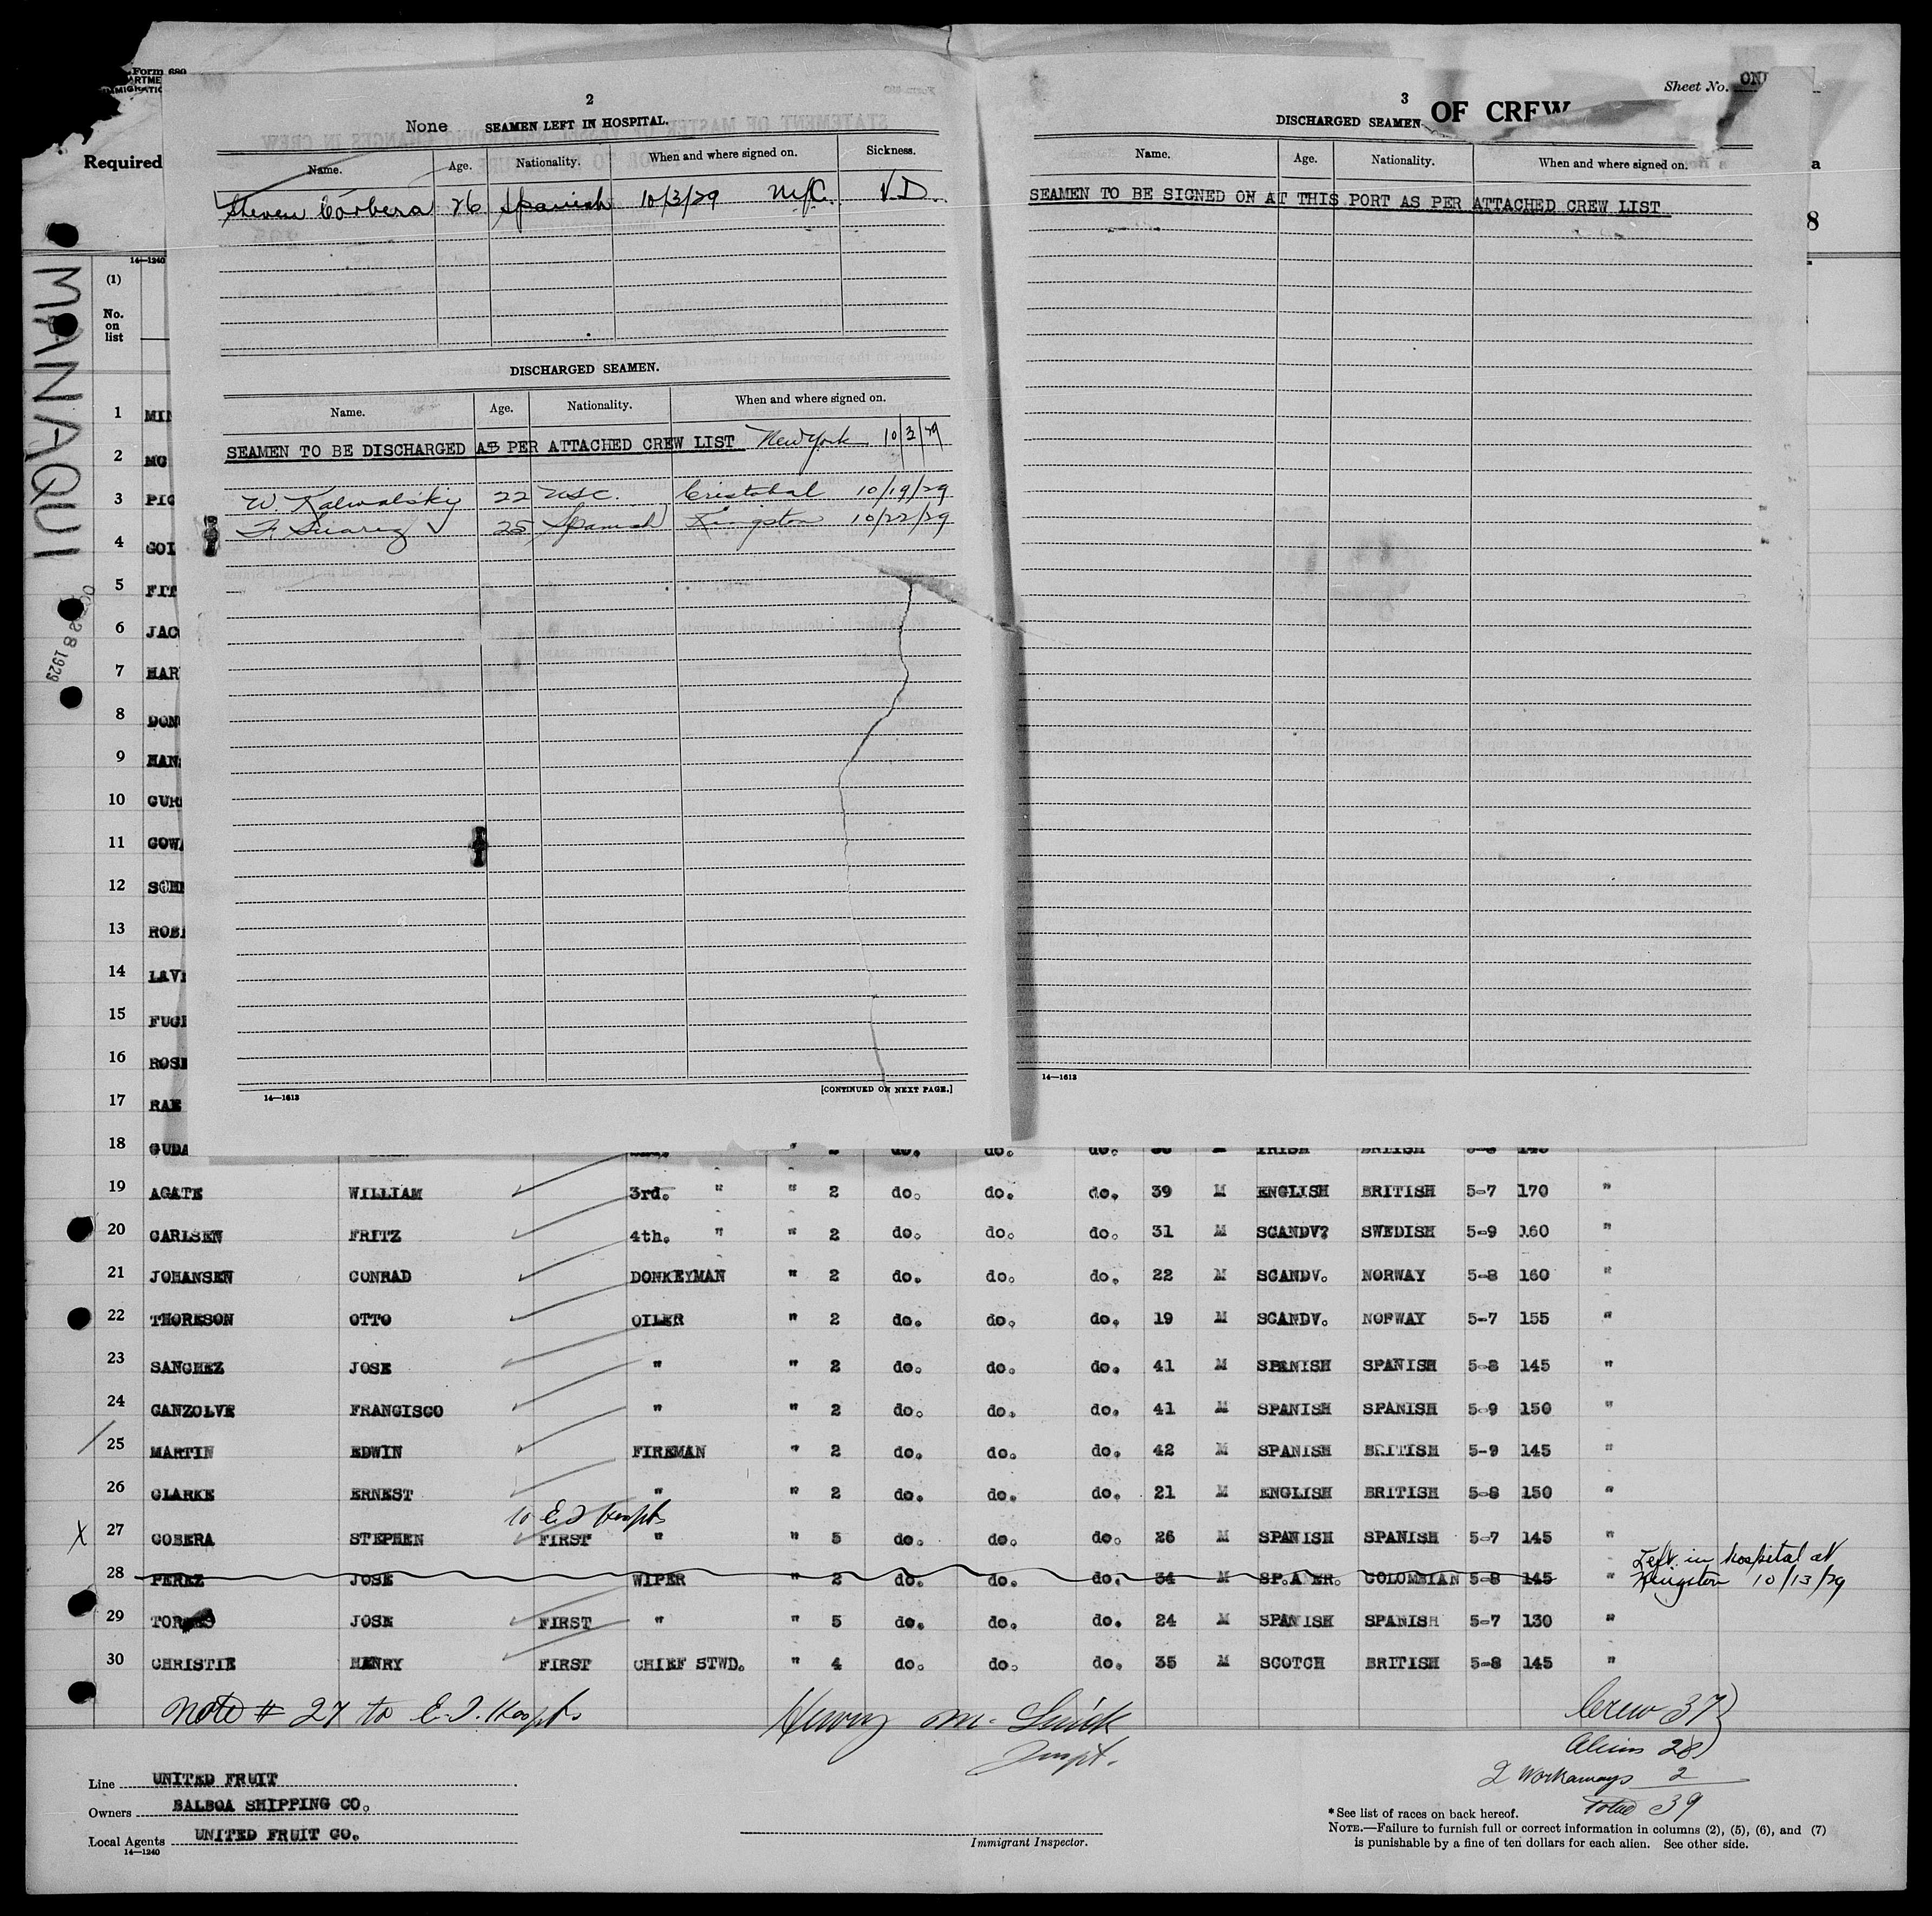 Form 680
Sheet No. ONE
OF CREW
Required
MANAQUI
OCT 28 1929
2
None SEAMEN LEFT IN HOSPITAL.
Name. Age. Nationality. When and where signed on. Sickness.
Steven Corbera 26 Spanish 10/3/29 NYC. V.D.
DISCHARGED SEAMEN.
Name. Age. Nationality. When and where signed on.
SEAMEN TO BE DISCHARGED AS PER ATTACHED CREW LIST New York 10/3/29
W. Kalwalsky 22 USC. Cristobal 10/19/29
F. Suarez 25 Spanish Kingston 10/22/29
[CONTINUED ON NEXT PAGE.]
14—1613
3
DISCHARGED SEAMEN.
Name. Age. Nationality. When and where signed on.
SEAMEN TO BE SIGNED ON AT THIS PORT AS PER ATTACHED CREW LIST
14—1613
a
8
14—1240
(1)
No. on list
1 MIN
2 MC
3 PIG
4 GOI
5 FIT
6 JAC
7 HAR
8 DON
9 HAN
10 GUR
11 COWA
12 SCH
13 ROB
14 LAV
15 FUG
16 ROS
17 RAE
18 GUDA do. do. do. M IRISH BRITISH 5-8 145
19 AGATE WILLIAM 3rd. " " 2 do. do. do. 39 M ENGLISH BRITISH 5-7 170 "
20 CARLSEN FRITZ 4th. " " 2 do. do. do. 31 M SCANDV? SWEDISH 5-9 160 "
21 JOHANSEN CONRAD DONKEYMAN " 2 do. do. do. 22 M SCANDV. NORWAY 5-8 160 "
22 THORESON OTTO OILER " 2 do. do. do. 19 M SCANDV. NORWAY 5-7 155 "
23 SANCHEZ JOSE " " 2 do. do. do. 41 M SPANISH SPANISH 5-8 145 "
24 CANZOLVE FRANCISCO " " 2 do. do. do. 41 M SPANISH SPANISH 5-9 150 "
25 MARTIN EDWIN FIREMAN " 2 do. do. do. 42 M SPANISH BRITISH 5-9 145 "
26 CLARKE ERNEST " " 2 do. do. do. 21 M ENGLISH BRITISH 5-8 150 "
to E.I. Hospts
X 27 COBERA STEPHEN FIRST " " 5 do. do. do. 26 M SPANISH SPANISH 5-7 145 "
28 PEREZ JOSE WIPER " 2 do. do. do. 34 M SP.AMER. COLOMBIAN 5-8 145 " Left in hospital at Kingston 10/13/29
29 TORRES JOSE FIRST " " 5 do. do. do. 24 M SPANISH SPANISH 5-7 130 "
30 CHRISTIE HENRY FIRST CHIEF STWD. " 4 do. do. do. 35 M SCOTCH BRITISH 5-8 145 "
Note # 27 to E.I. Hospts
Henry M.
Inspt.
Crew 37
Aliens 28
2 Workaways 2
Total 39
Line UNITED FRUIT
Owners BALBOA SHIPPING CO.
Local Agents UNITED FRUIT CO.
14—1240
Immigrant Inspector.
*See list of races on back hereof.
NOTE.—Failure to furnish full or correct information in columns (2), (5), (6), and (7)
is punishable by a fine of ten dollars for each alien. See other side.